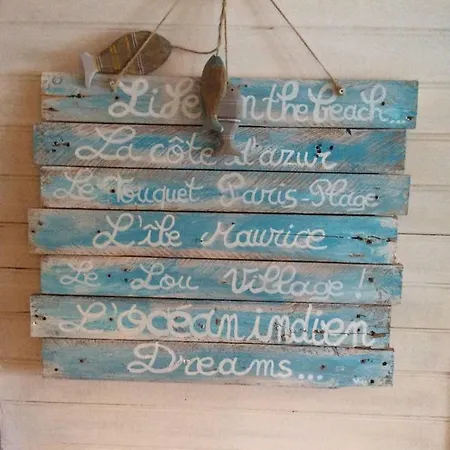 Life on the beach...
La côte d'azur
Le Touquet Paris-Plage
L'île Maurice
Le Lou Village !
L'océan indien
Dreams...